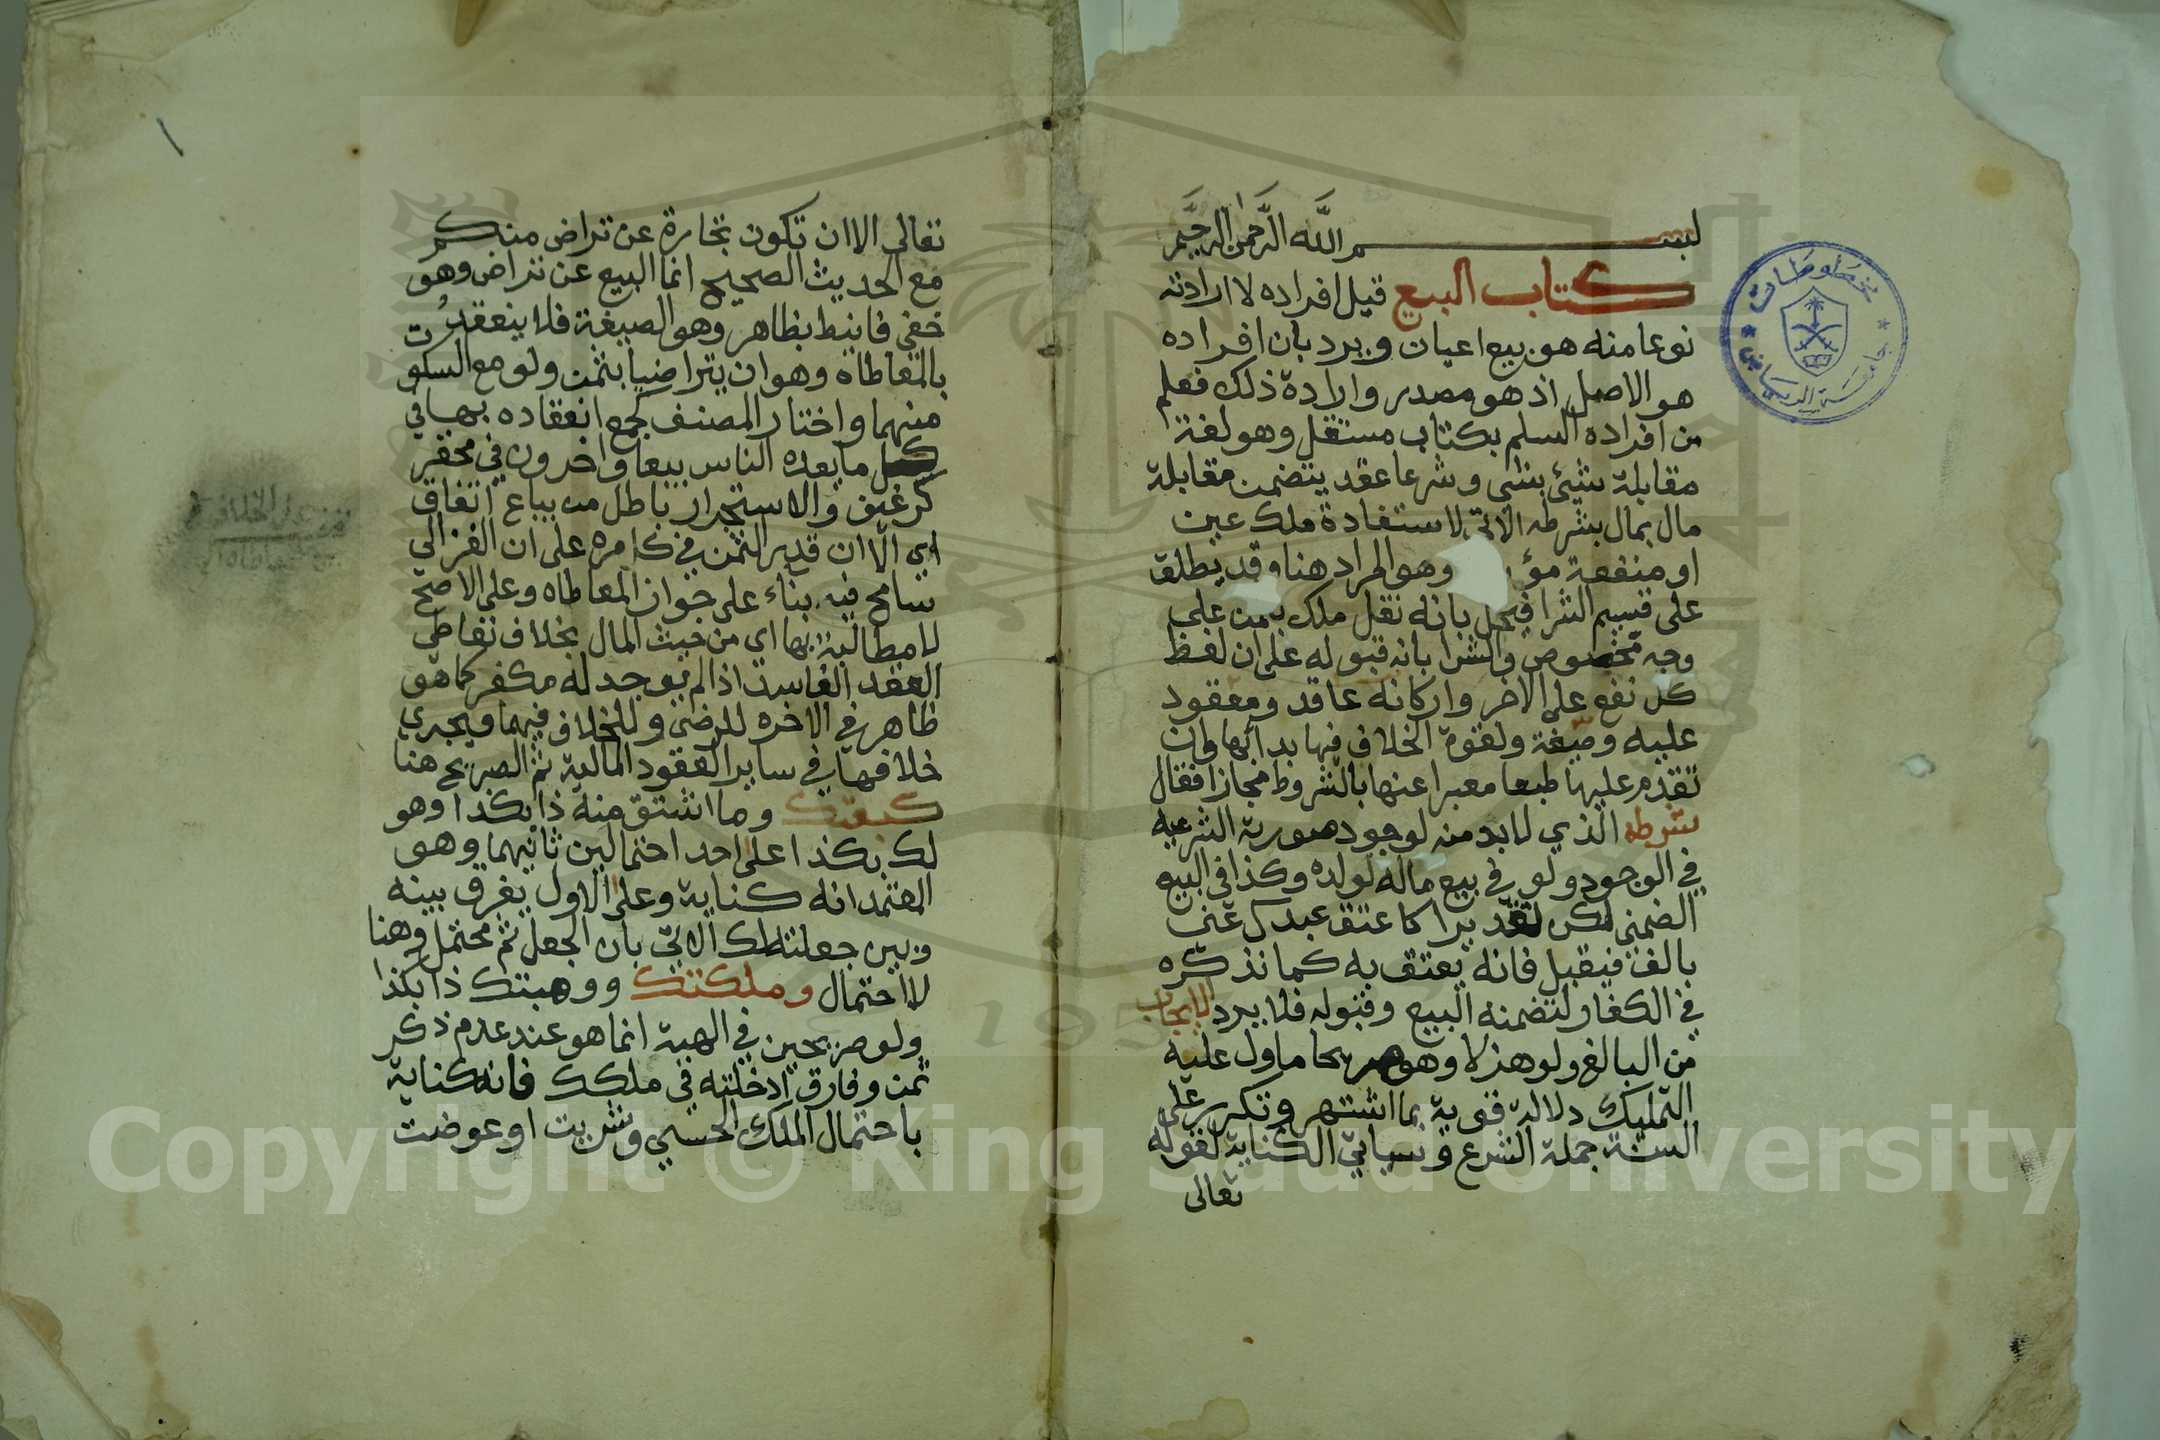 بسم الله الرحمن الرحيم
كتاب البيع قيل افراده لا ارادته
نوعا منه هو بيع اعيان ويرد بان افراده
هو الاصل اذ هو مصدر وارادة ذلك فعلم
من افراده السلم بكتاب مستقل وهو لغة
مقابلة شيئ بشي وشرعا عقد يتضمن مقابلة
مال بمال بشرطه الاتي لاستفادة ملك عين
او منفعة مؤ وهو المراد هنا وقد يطلق
على قسيم الشرا فيحل بانه نقل ملك بثمن على
وجه مخصوص والشرا بانه قبوله على ان لفظ
كل نقع على الاخر واركانه عاقد ومعقود
عليه وصيغة ولقوة الخلاف فيها بدا بها وان
تقدم عليها طبعا معبرا عنها بالشروط مجازا فقال
شرطه الذي لابد منه لوجود صورته الشرعيه
في الوجود ولو في بيع ماله لولده وكذا في البيع
الضمني لكن تقديرا كاعتق عبدك عني
بالف فيقبل فانه يعتق به كما نذكره
في الكفارلتضمنه البيع وقبوله فلا يرد الايجاب
من البالغ ولو هزلا وهو صريحا ما دل عليه
التمليك دلالة قوية بما اشتهر وتكرر على
السنة جملة الشرع وسياتي الكناية لقوله
تعالى
تعالى الا ان تكون تجارة عن تراض منكم
مع الحديث الصحيح انما البيع عن تراض وهو
خفي فانيط بظاهر وهو الصيغة فلا ينعقد
بالمعاطاه وهو ان يتراضيا بثمن ولو مع السكوت
منهما واختار المصنف كجمع انعقاده بها في
كل ما يعده الناس بيعا واخرون في محقر
كرغيف والاستجرار باطل من بياع اتفاقا
اي الا ان قدر الثمن في كل مره على ان الغزالي
سامح فيه بناء على جواز المعاطاه وعلى الاصح
لا مطالبة بها اي من حيث المال بخلاف تعاطي
العقد الفاسد اذا لم يوجد له مكفر كما هو
ظاهر في الاخره للرضى وللخلاف فيها ويجري
خلافها في ساير العقود المالية ثم الصريح هنا
كبعتك وما اشتق منه ذا بكذا وهو
لك بكذا على احد احتمالين ثانيهما وهو
المعتمد انه كناية وعلى الاول يفرق بينه
وبين جعلته لك الاتي بان الجعل ثم محتمل وهنا
لا احتمال وملكتك ووهبتك ذا بكذا
ولو صريحين في الهبة انما هو عند عدم ذكر
ثمن وفارق ادخلته في ملكك فانه كناية
باحتمال الملك الحسي وشريت او عوضت
مخطوطات
جامعة الرياض
Copyright © King Saud University